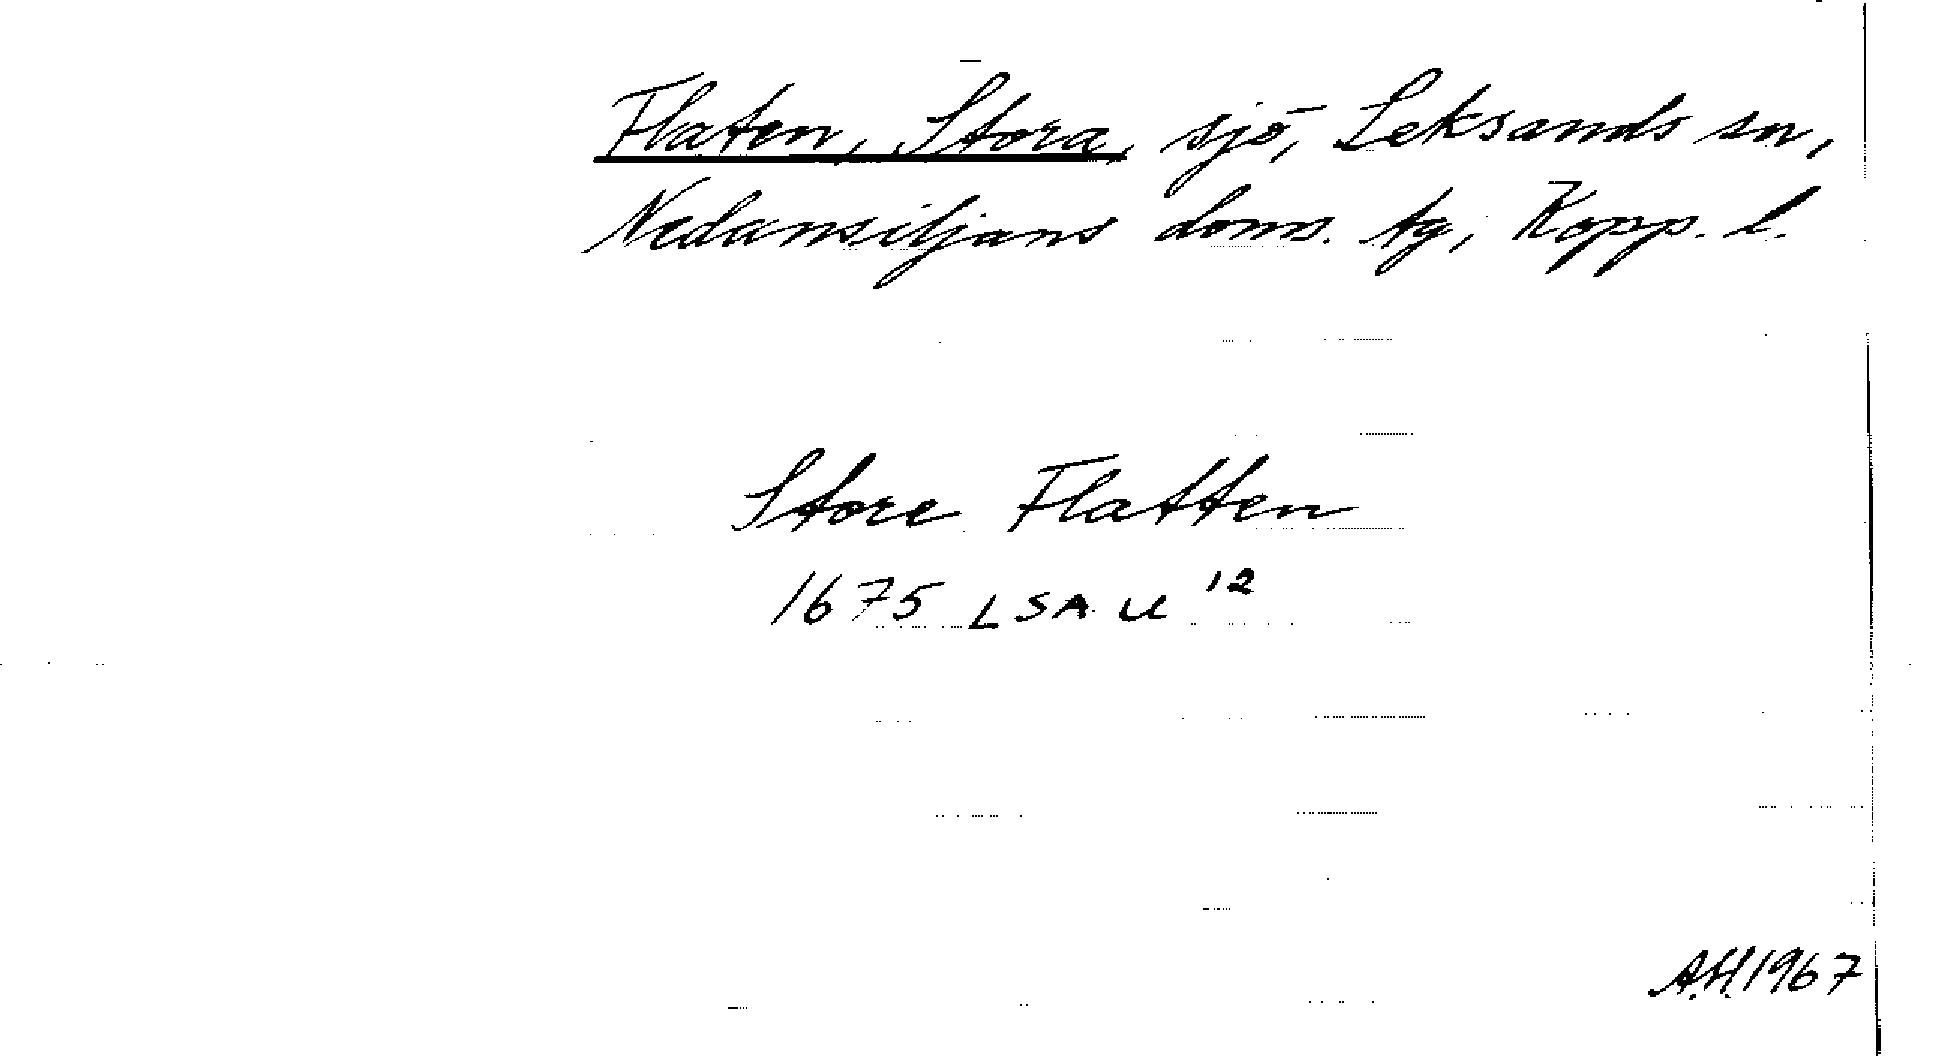 Flaten, Stora, sjö, Leksands sn,
Nedansiljans doms. tg, Kopp. l.
Store Flatten
1675 LSA U 12
A.H. 1967